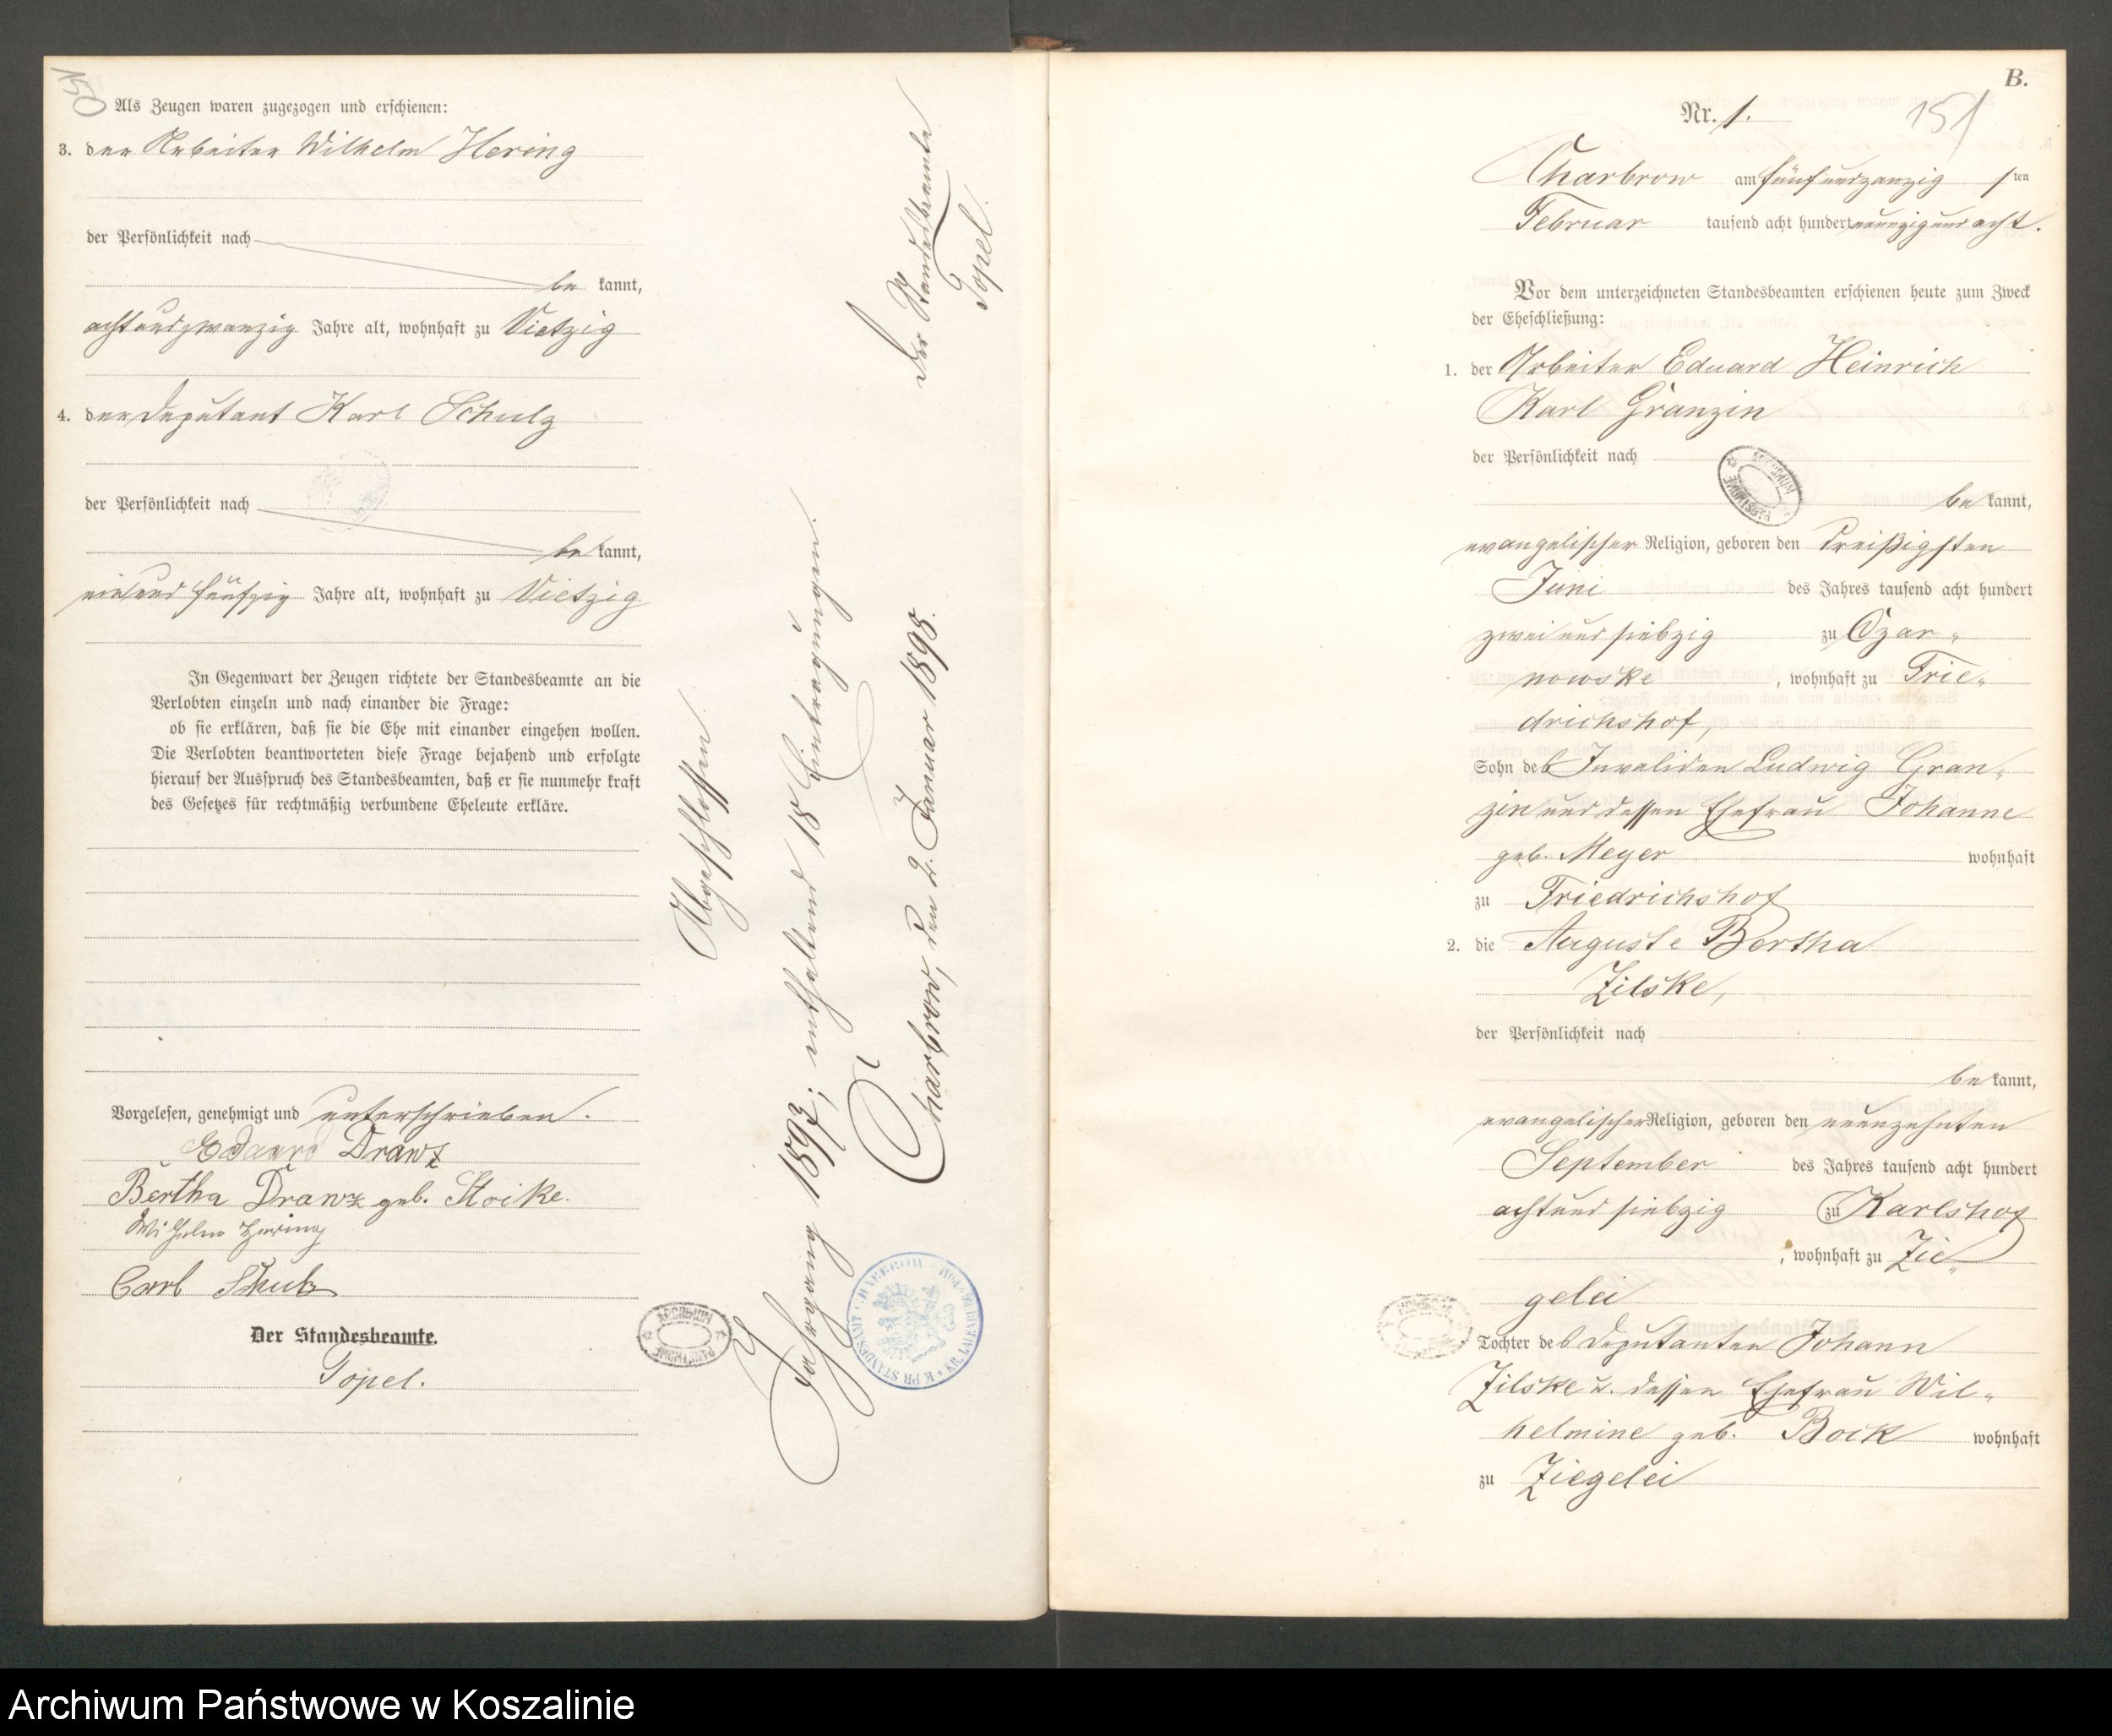 150
Als Zeugen waren zugezogen und erschienen:
3. der Arbeiter Wilhelm Hering
der Persönlichkeit nach
be kannt,
achtundzwanzig Jahre alt, wohnhaft zu Vietzig
4. der Deputant Karl Schulz
der Persönlichkeit nach
be kannt,
einundfünfzig Jahre alt, wohnhaft zu Vietzig
In Gegenwart der Zeugen richtete der Standesbeamte an die
Verlobten einzeln und nach einander die Frage:
ob sie erklären, daß sie die Ehe mit einander eingehen wollen.
Die Verlobten beantworteten diese Frage bejahend und erfolgte
hierauf der Ausspruch des Standesbeamten, daß er sie nunmehr kraft
des Gesetzes für rechtmäßig verbundene Eheleute erkläre.
Vorgelesen, genehmigt und unterschrieben.
Eduard Drawz
Bertha Drawz geb. Stoike.
Wilhelm Hering
Carl Schulz
Der Standesbeamte.
Topel.
Abgeschlossen.
Jahrgang 1897; enthaltend 18 Eintragungen.
Charbrow, den 2. Januar 1898.
Der Standesbeamte
Topel.
B.
Nr. 1.
151
Charbrow am fünfundzanzig sten
Februar tausend acht hundert neunzig und acht.
Vor dem unterzeichneten Standesbeamten erschienen heute zum Zweck
der Eheschließung:
1. der Arbeiter Eduard Heinrich
Karl Granzin
der Persönlichkeit nach
be kannt,
evangelischer Religion, geboren den dreißigsten
Juni des Jahres tausend acht hundert
zwei und siebzig zu Czar„
nowske, wohnhaft zu Frie„
drichshof,
Sohn des Invaliden Ludwig Gran„
zin und dessen Ehefrau Johanne
geb. Meyer wohnhaft
zu Friedrichshof
2. die Auguste Bertha
Zilske,
der Persönlichkeit nach
be kannt,
evangelischer Religion, geboren den neunzehnten
September des Jahres tausend acht hundert
acht und siebzig zu Karlshof
, wohnhaft zu Zie„
gelei
Tochter des Deputanten Johann
Zilske u. dessen Ehefrau Wil„
helmine geb. Bock wohnhaft
zu Ziegelei
Archiwum Państwowe w Koszalinie